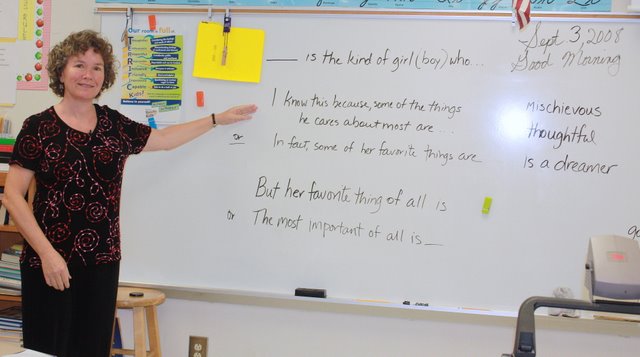 Our room is full of...
TERRIFIC
Kids!
Sept 3, 2008
Good Morning
___ is the kind of girl (boy) who...
I know this because, some of the things
he cares about most are...
or
In fact, some of her favorite things are
Mischievous
thoughtful
is a dreamer
But her favorite thing of all is
or The most important of all is _